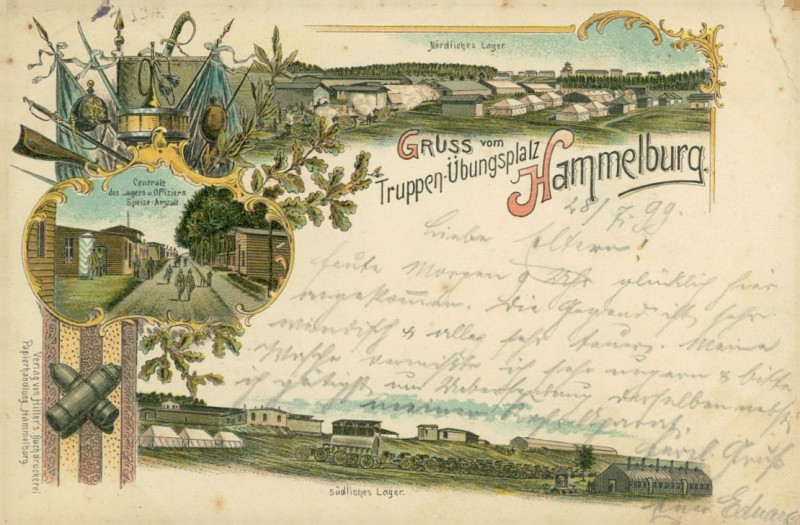 Nördliches Lager.
Gruss vom
Truppen-Übungsplatz
Hammelburg.
Centrale
des Lagers u. Offiziers
Speise-Anstalt.
28/7. 99.
Liebe Eltern!
heute Morgen 9 Uhr glücklich hier
angekommen. Die Gegend ist sehr
& alles sehr teuer. Meine
Wäsche vermisse ich sehr ungern & bitte
ich gütigst um Uebersendung derselben nebst
meinem
Herzl. Gruß
Euer Eduard
Südliches Lager.
Verlag von Hiller's Buchdruckerei
Papierhandlung, Hammelburg.